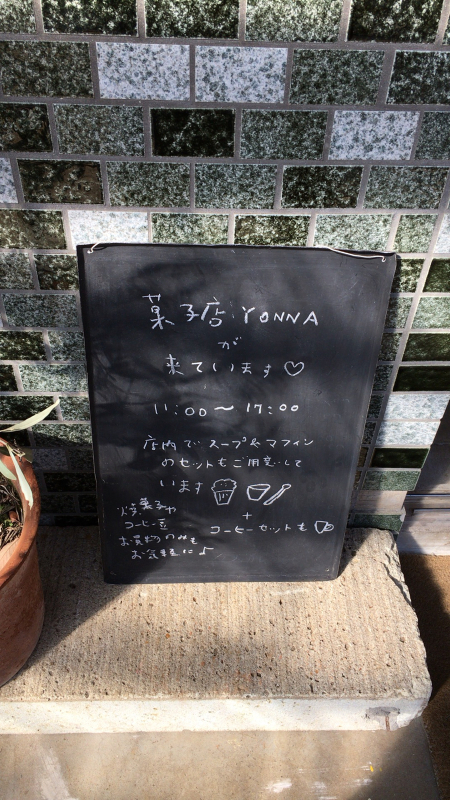 菓子店 YONNA
が
来ています♡
11:00〜17:00
店内でスープ&マフィン
のセットもご用意して
います
+
コーヒーセットも
焼菓子や
コーヒーを
お買物のみも
お気軽に♪